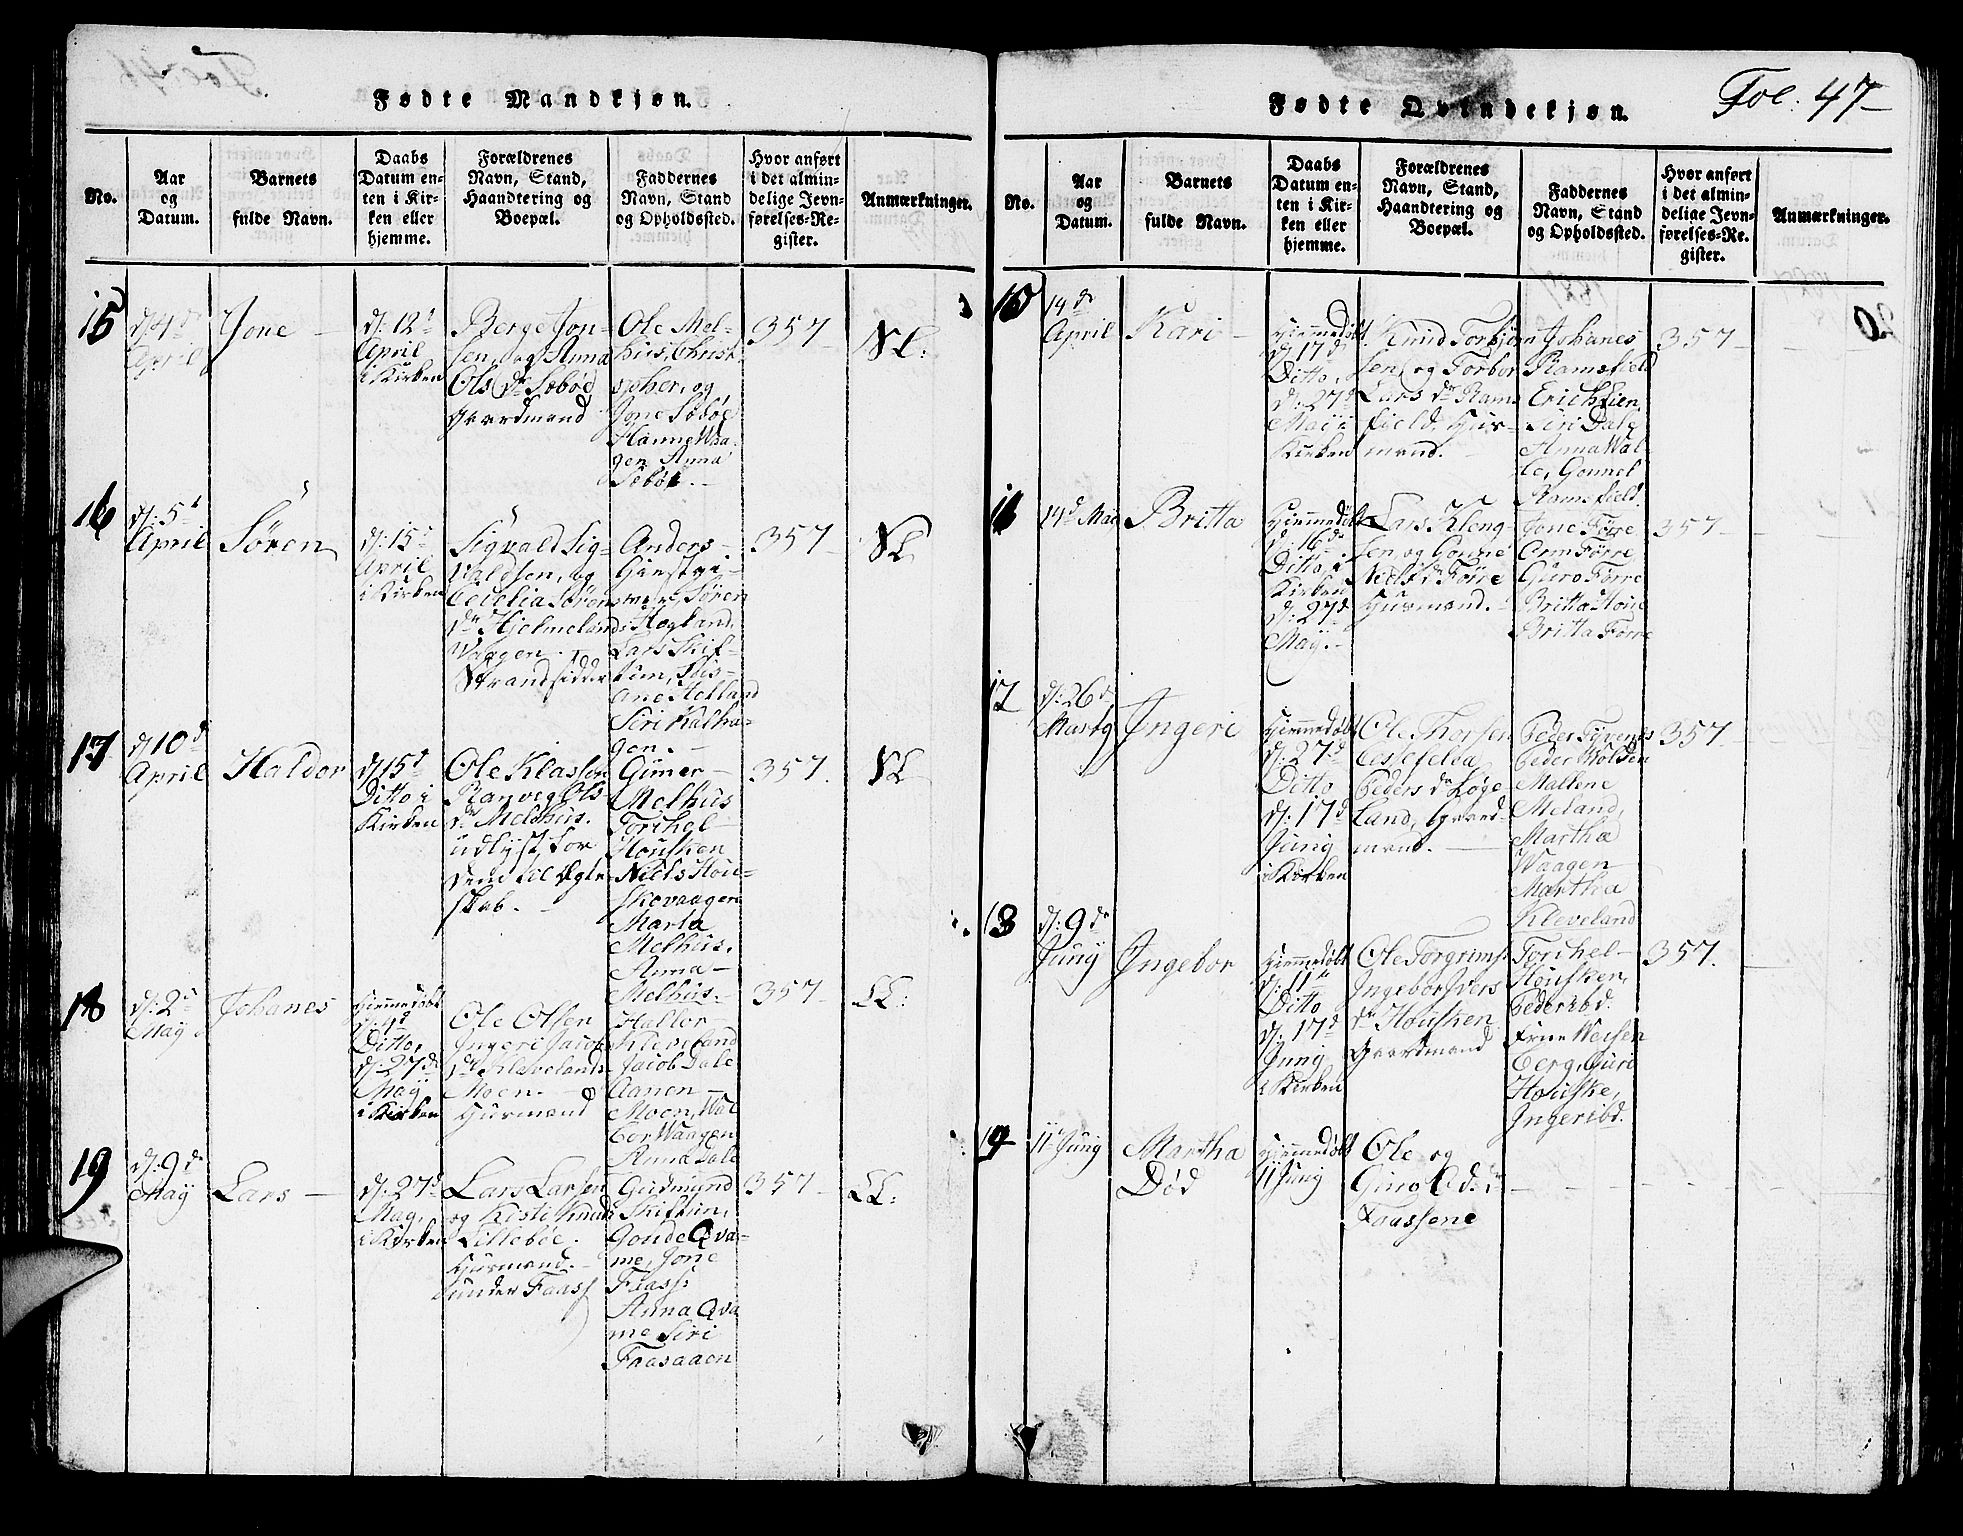 Fødte Mandkjøn.
No.
Aar
og
Datum.
Barnets
fulde Navn.
Daabs
Datum en-
ten i Kir-
ken eller
hjemme.
Forældrenes
Navn, Stand,
Haandtering og
Boepæl.
Faddernes
Navn, Stand
og Opholdssted.
Hvor anført
i det almin-
delige Jevn-
førelses-Re-
gister.
Anmærkninger.
15
d: 4d
April
Jone
d: 12d
April
i Kirken
Berge Jon-
sen, og Anna
Ols Dr Sebøe,
Gaardmand
Ole Mel-
hus, Christ-
opher, og
Jone Sebøe
Hanne Waa-
gen Anna
Sebøe.
357
16
d: 5t
April
Søren
d: 15d
April
i Kirken
Sigvald Sig-
valdsen, og
Cecelia Sørens
Dr Hjelmelands
Vaagen.
Strandsidder
Anders
Søren
Hogland,
Lars Skif-
tun,
ane Helland
Siri Kalha-
gen.
357
17
d: 10d
April
Haldor
d: 15d
Ditto i
Kirken
Ole Klassen
Ranveg Ols
Dr Melshus.
udlyst for
dem til Egte-
skab.
Gumer
Melhus
Torchel
Housken
Niels Hou-
skevaagen
Marta
Melhus.
Anna
Melhus.
357
18
d: 2d
May
Johanes
Hjemmedøbt
d: 4d
Ditto,
d: 27d
May
i Kirken
Ole Olsen
Ingeri Jacobs
Dr Klevelands
Moen.
Huusmand
Hallor
Kleveland
Jacob Dale
Aanen
Moen, Wal
bor Waagen
Anna Dale
357
19
d: 9d
May
Lars
d: 27d
May,
i Kirken
Lars Larsen
og Kisti Knuds
Lillebøe.
Huusmand.
under Faass
Gudmund
Skiftun,
Goude Qva-
me, Jone
Faass:
Anna Qva
me Siri
Faasaaen
357
Fødte Qvindekjøn.
Fol: 47
No.
Aar
og
Datum.
Barnets
fulde Navn.
Daabs
Datum en-
ten i Kir-
ken eller
hjemme.
Forældrenes
Navn, Stand,
Haandtering og
Boepæl.
Faddernes
Navn, Stand
og Opholdssted.
Hvor anført
i det almin-
delige Jevn-
førelses-Re.
gister.
Anmærkninger.
10
14d
April
Kari
Hjemmedøbt
d: 17d
Ditto,
d: 27d
Mai i
Kirken
Knud Torbjørn
sen, og Torbor
Lars Dr Rams
field, Huus-
mand.
Johanes
Ramsfield
Erich Lien
Siri Dale
Anna Wal-
le, Gonnel
Ramsfield.
357
11
14d Mai
Britta
Hjemmedøbt
d: 16d
Ditto, i
Kirken
d: 27d
May.
Lars Kleng-
sen, og Gonne
Niels Dr Førre
Huusmand.
Jone Førre
Orm Førre
Guro Førre
Britta Houe
Britta Førre
357
12
d: 26d
Ingeri
Hjemmedøbt
d: 27d
Ditto
d: 17d
Juny
i Kirken
Ole Thorsen
Peders Dr Løge
Land, Gaard-
mand.
Peder Tyvenes
Peder Wolden
Mallene
Meland,
Martha
Waagen
Martha
Kleveland
357
13
d: 9d
Juny
Ingebor
Hjemmedøbt
d: 11d
Ditto
d: 17d
Juny
i Kirken
Ole Torgrims:
Ingebor Ivers
Dr Housken
Gaardmand
Torchel
Housken,
Peder ibd.
berg, Guri
Houske,
Ingeri ibd.
357.
14
11d Juny
Martha
Død
Hjemmedøbt
11 Juny
Ole og
Faassene